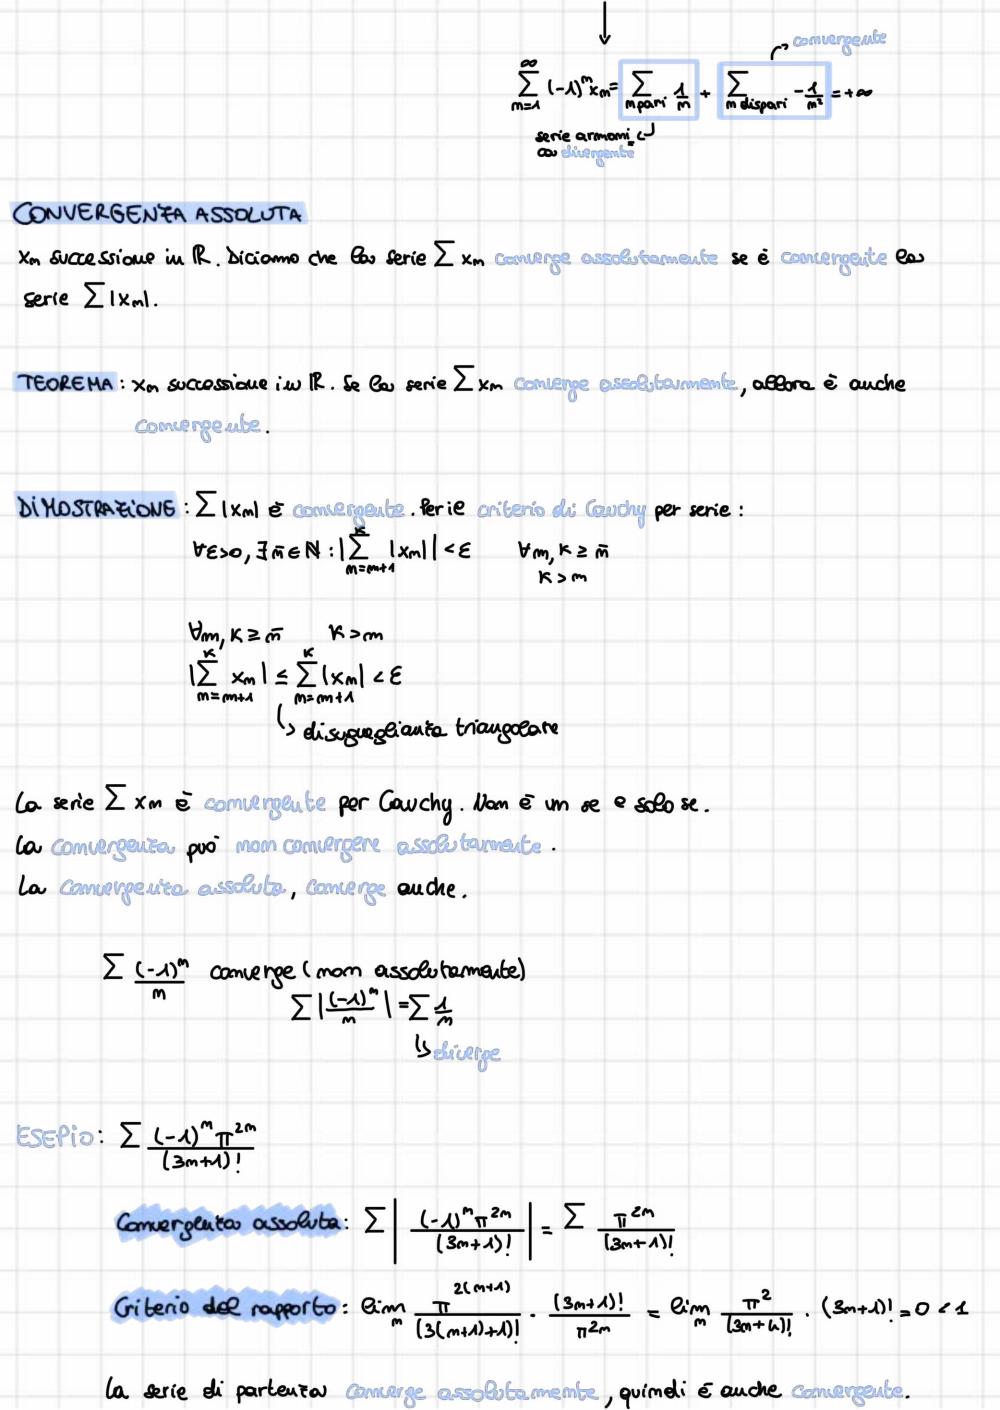 convergente
∞∑n=1 (-1)^n xn = ∑n pari 1/n + ∑n dispari -1/n² = +∞
serie armoni=
ca divergente
CONVERGENZA ASSOLUTA
xn successione in ℝ. Diciamo che la serie ∑ xn converge assolutamente se è convergente la
serie ∑ |xn|.
TEOREMA: xn successione in ℝ. Se la serie ∑ xn converge assolutamente, allora è anche
convergente.
DIMOSTRAZIONE: ∑ |xn| è convergente. Per il criterio di Cauchy per serie:
∀ε>0, ∃ n̄ ∈ ℕ : |∑_{n=m+1}^{k} |xn|| < ε ∀m, k ≥ n̄
k > m
∀m, k ≥ n̄ k > m
|∑_{n=m+1}^{k} xn| ≤ ∑_{n=m+1}^{k} |xn| < ε
↳ disuguaglianza triangolare
La serie ∑ xn è convergente per Cauchy. Non è un se e solo se.
La convergenza può non convergere assolutamente.
La convergenza assoluta, converge anche.
∑ (-1)^n/n converge (non assolutamente)
∑ |(-1)^n/n| = ∑ 1/n
↳ diverge
ESEPIO: ∑ (-1)^n π^{2n}/(3n+1)!
Convergenza assoluta: ∑ |(-1)^n π^{2n}/(3n+1)!| = ∑ π^{2n}/(3n+1)!
Criterio del rapporto: lim_n π^{2(n+1)}/(3(n+1)+1)! · (3n+1)!/π^{2n} = lim_n π²/(3n+4)! · (3n+1)! = 0 < 1
La serie di partenza converge assolutamente, quindi è anche convergente.